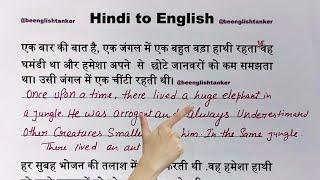 Hindi to English
@beenglishtanker @beenglishtanker
एक बार की बात है, एक जंगल में एक बहुत बड़ा हाथी रहता था वह
घमंडी था और हमेशा अपने से छोटे जानवरों को कम समझता
था। उसी जंगल में एक चींटी रहती थी। @beenglishtanker
Once upon a time, there lived a huge elephant in
a jungle. He was arrogant and always underestimated
Other Creatures Smaller him. In the Same jungle.
There lived an ant
हर सुबह भोजन की तलाश में करती थी .वह हमेशा हाथी